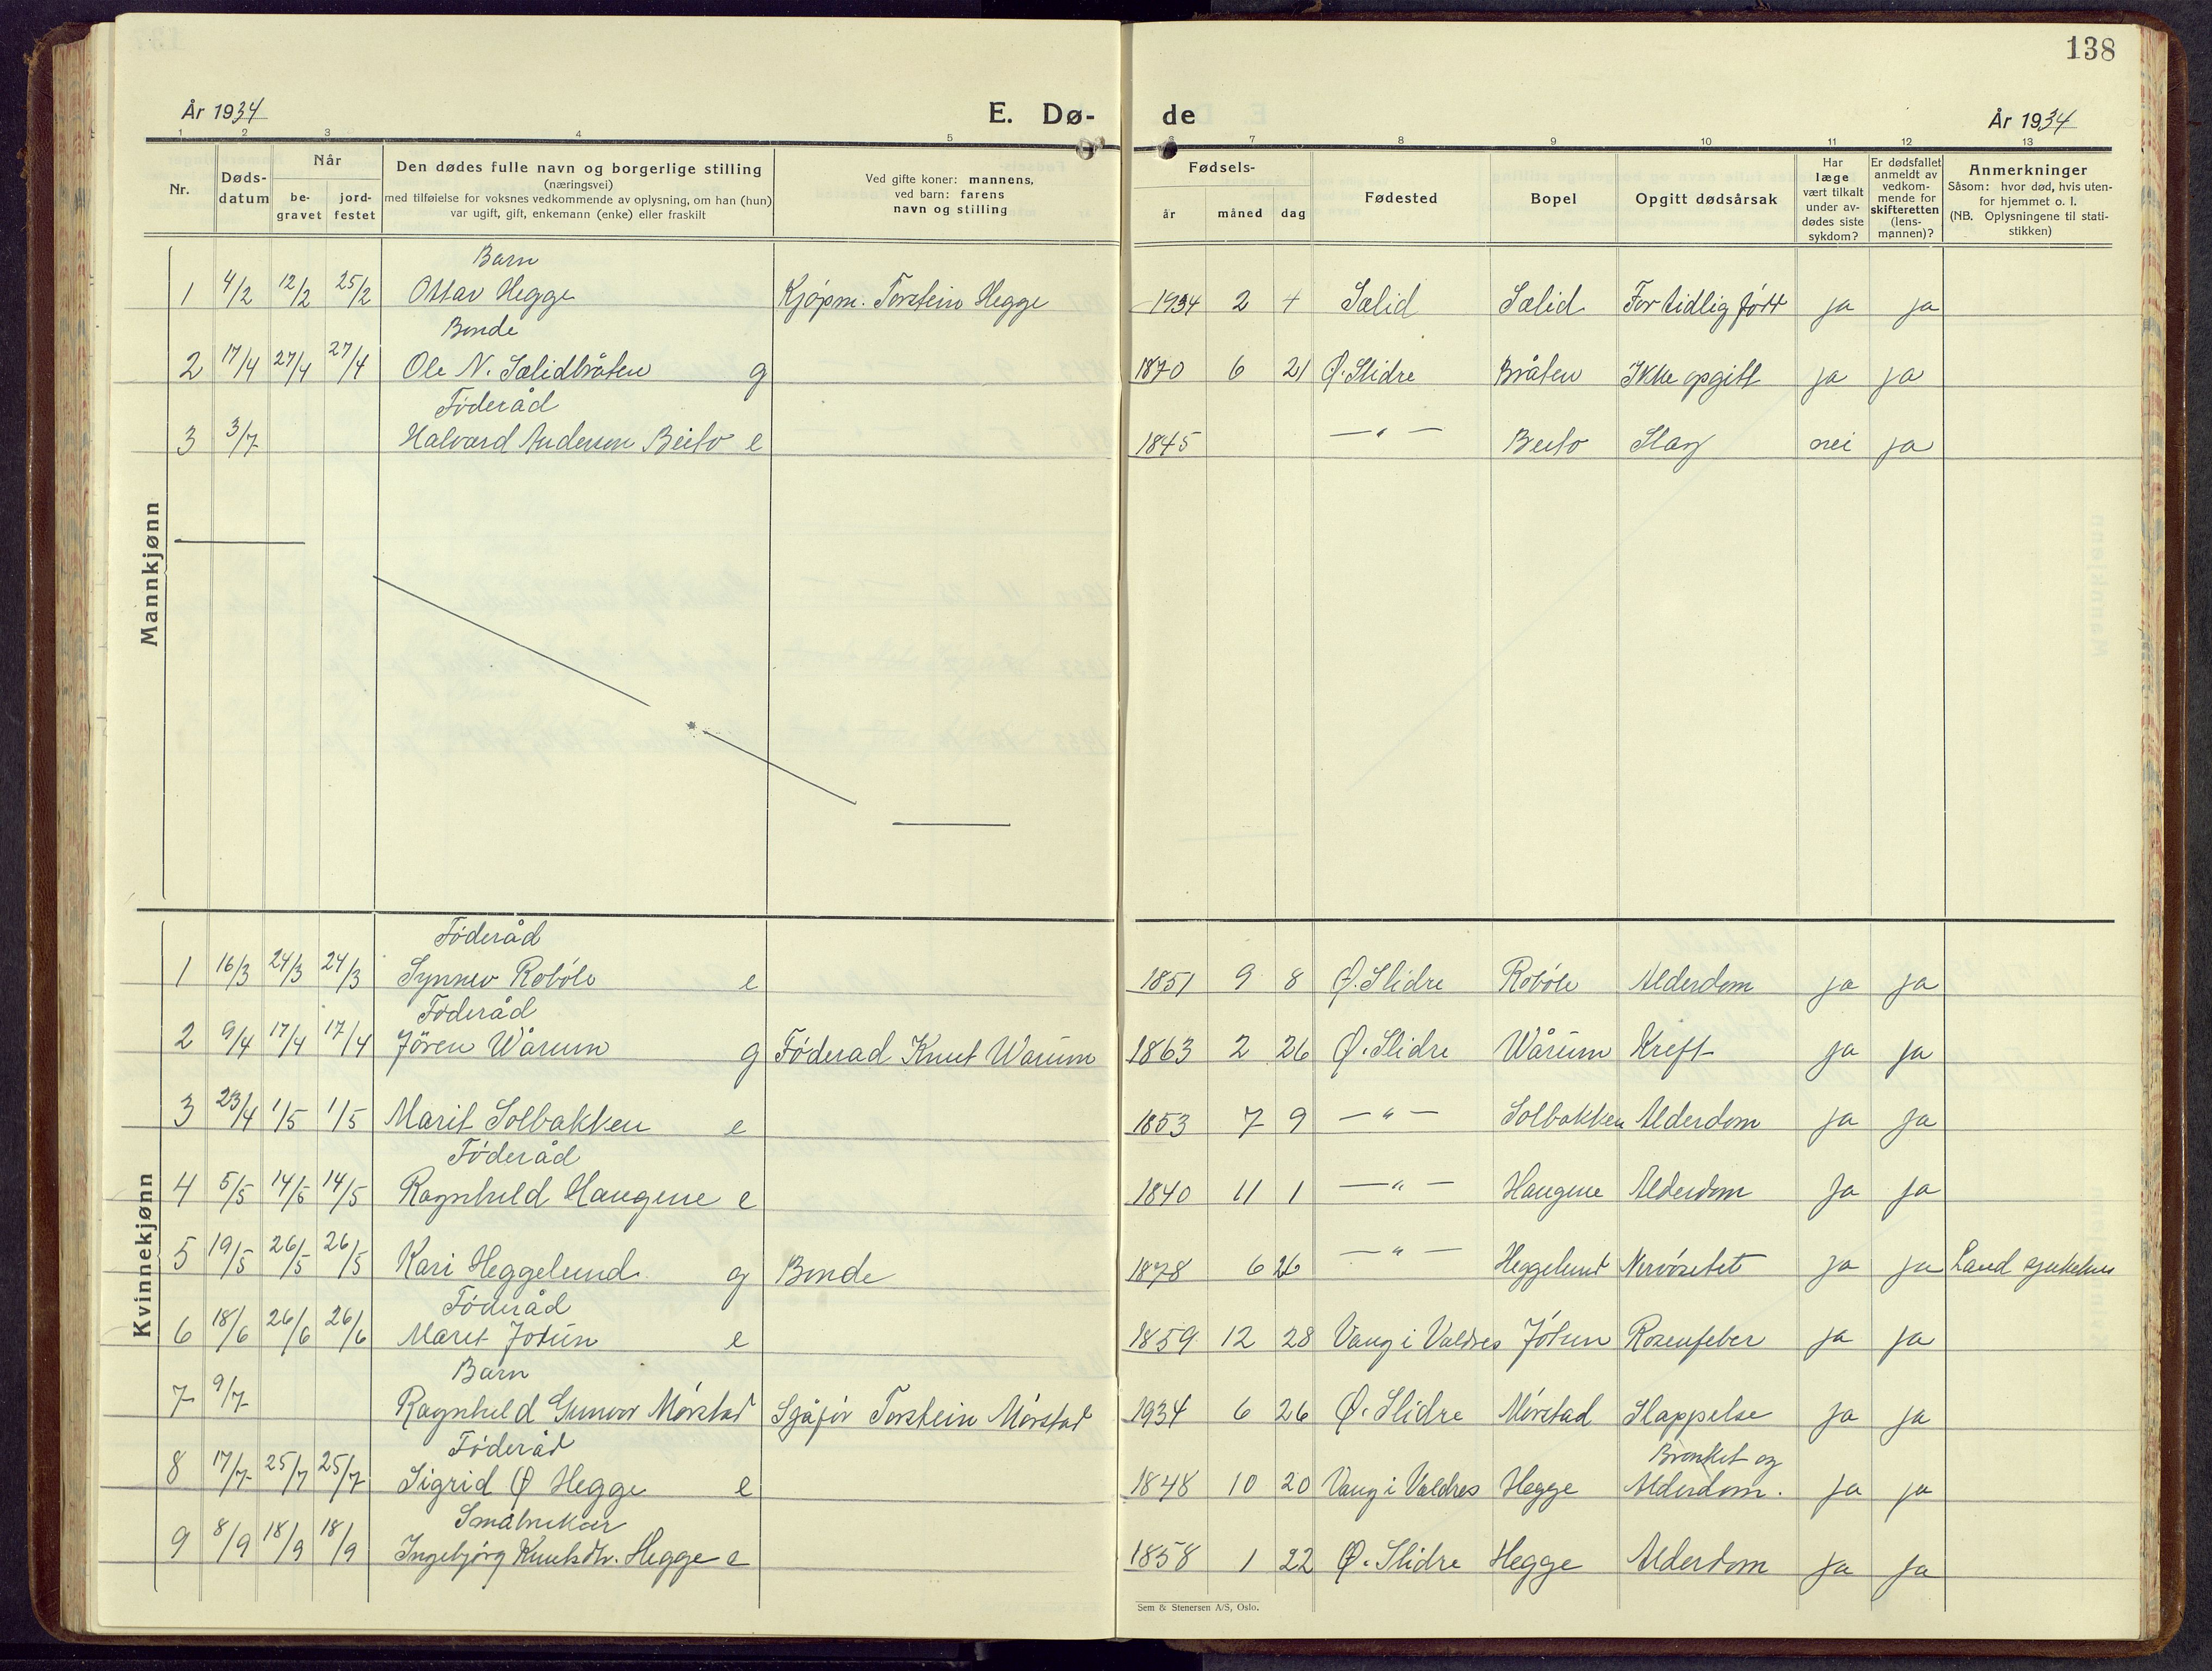 138
År 1934 E. Dø- de År 1934
1 2 3 4 5 6 7 8 9 10 11 12 13
Nr. Dødsdatum Når begravet jordfestet Den dødes fulle navn og borgerlige stilling (næringsvei) med tilføielse for voksnes vedkommende av oplysning, om han (hun) var ugift, gift, enkemann (enke) eller fraskilt Ved gifte koner: mannens, ved barn: farens navn og stilling Fødsels- år måned dag Fødested Bopel Opgitt dødsårsak Har læge vært tilkalt under avdødes siste sykdom? Er dødsfallet anmeldt av vedkommende for skifteretten (lensmannen)? Anmerkninger Såsom: hvor død, hvis utenfor hjemmet o. l. (NB. Oplysningene til statistikken)
Mannkjønn
Barn
1 4/2 12/2 25/2 Ottar Hegge Kjøpm. Torstein Hegge 1934 2 4 Sælid Sælid For tidlig født ja ja
Bonde
2 17/4 27/4 27/4 Ole N. Sælidbråten g 1870 6 21 Ø. Slidre Bråten Ikke opgitt ja ja
Føderåd
3 3/7 Halvard Andersen Beito e 1845 — " — Beito Slag nei ja
Kvinnekjønn
Føderåd
1 16/3 24/3 24/3 Synnev Robøle e 1851 9 8 Ø. Slidre Robøle Alderdom ja ja
Føderåd
2 9/4 17/4 17/4 Jøren Wårum g Føderad Knut Warum 1863 2 26 Ø. Slidre Wårum Kreft ja ja
3 23/4 1/5 1/5 Marit Solbakken e 1853 7 9 — " — Solbakken Alderdom ja ja
Føderåd
4 5/5 14/5 14/5 Ragnhild Haugene e 1840 11 1 — " — Haugene Alderdom Ja ja
5 19/5 26/5 26/5 Kari Heggelund g Bonde 1878 6 26 — " — Heggelund Nervøsitet ja ja Land sjukehus
Føderåd
6 18/6 26/6 26/6 Marit Jotun e 1859 12 28 Vang i Valdres Jotun Rosenfeber ja ja
Barn
7 9/7 Ragnhild Gunvor Mørstad Sjåfør Torstein Mørstad 1934 6 26 Ø. Slidre Mørstad Slappelse ja ja
Føderåd
8 17/7 25/7 25/7 Sigrid Ø Hegge e 1848 10 20 Vang i Valdres Hegge Bronkit og Alderdom. ja ja
Småbrukar
9 8/9 18/9 18/9 Ingebjørg Knutsdtr. Hegge e 1858 1 22 Ø. Slidre Hegge Alderdom ja ja
Sem & Stenersen A/S, Oslo.